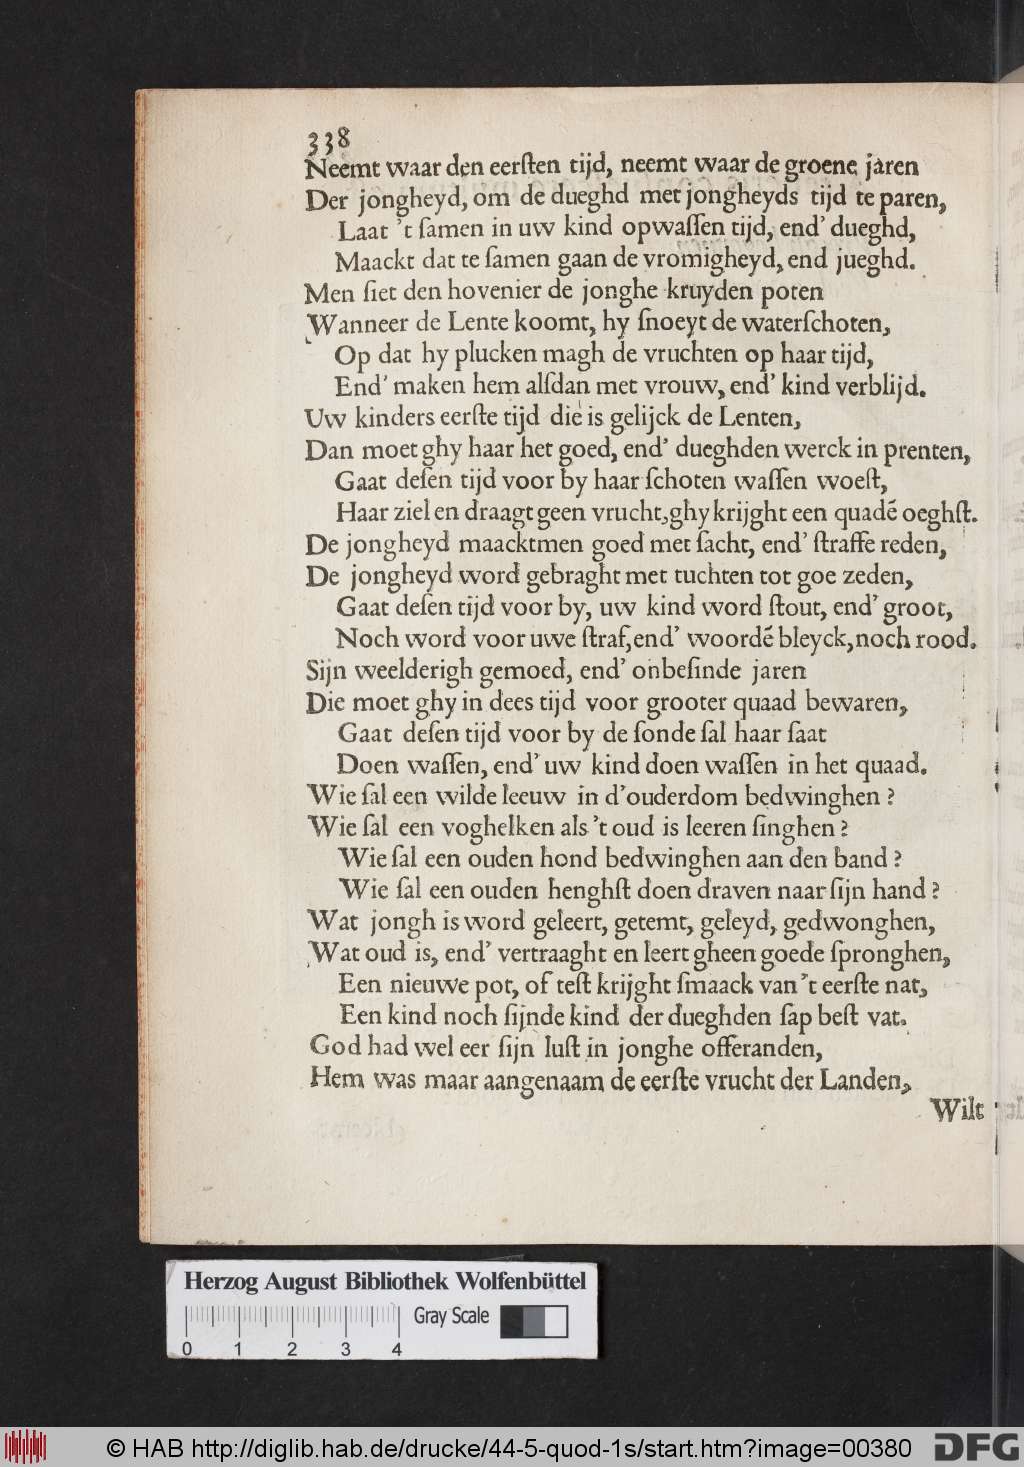 338
Neemt waar den eerſten tijd, neemt waar de groene jaren
Der jongheyd, om de dueghd met jongheyds tijd te paren,
Laat 't ſamen in uw kind opwaſſen tijd, end' dueghd,
Maackt dat te ſamen gaan de vromigheyd, end jueghd.
Men ſiet den hovenier de jonghe kruyden poten
Wanneer de Lente koomt, hy ſnoeyt de waterſchoten,
Op dat hy plucken magh de vruchten op haar tijd,
End' maken hem alſdan met vrouw, end' kind verblijd.
Uw kinders eerſte tijd die is gelijck de Lenten,
Dan moet ghy haar het goed, end' dueghden werck in prenten,
Gaat deſen tijd voor by haar ſchoten waſſen woeſt,
Haar ziel en draagt geen vrucht, ghy krijght een quadē oeghſt.
De jongheyd maacktmen goed met ſacht, end' ſtraffe reden,
De jongheyd word gebraght met tuchten tot goe zeden,
Gaat deſen tijd voor by, uw kind word ſtout, end' groot,
Noch word voor uwe ſtraf, end' woordē bleyck, noch rood.
Sijn weelderigh gemoed, end' onbeſinde jaren
Die moet ghy in dees tijd voor grooter quaad bewaren,
Gaat deſen tijd voor by de ſonde ſal haar ſaat
Doen waſſen, end' uw kind doen waſſen in het quaad.
Wie ſal een wilde leeuw in d'ouderdom bedwinghen?
Wie ſal een voghelken als 't oud is leeren ſinghen?
Wie ſal een ouden hond bedwinghen aan den band?
Wie ſal een ouden henghſt doen draven naar ſijn hand?
Wat jongh is word geleert, getemt, geleyd, gedwonghen,
Wat oud is, end' vertraaght en leert gheen goede ſpronghen,
Een nieuwe pot, of teſt krijght ſmaack van 't eerſte nat,
Een kind noch ſijnde kind der dueghden ſap beſt vat.
God had wel eer ſijn luſt in jonghe offeranden,
Hem was maar aangenaam de eerſte vrucht der Landen,
Wilt
Herzog August Bibliothek Wolfenbüttel
Gray Scale
0 1 2 3 4
© HAB http://diglib.hab.de/drucke/44-5-quod-1s/start.htm?image=00380
DFG